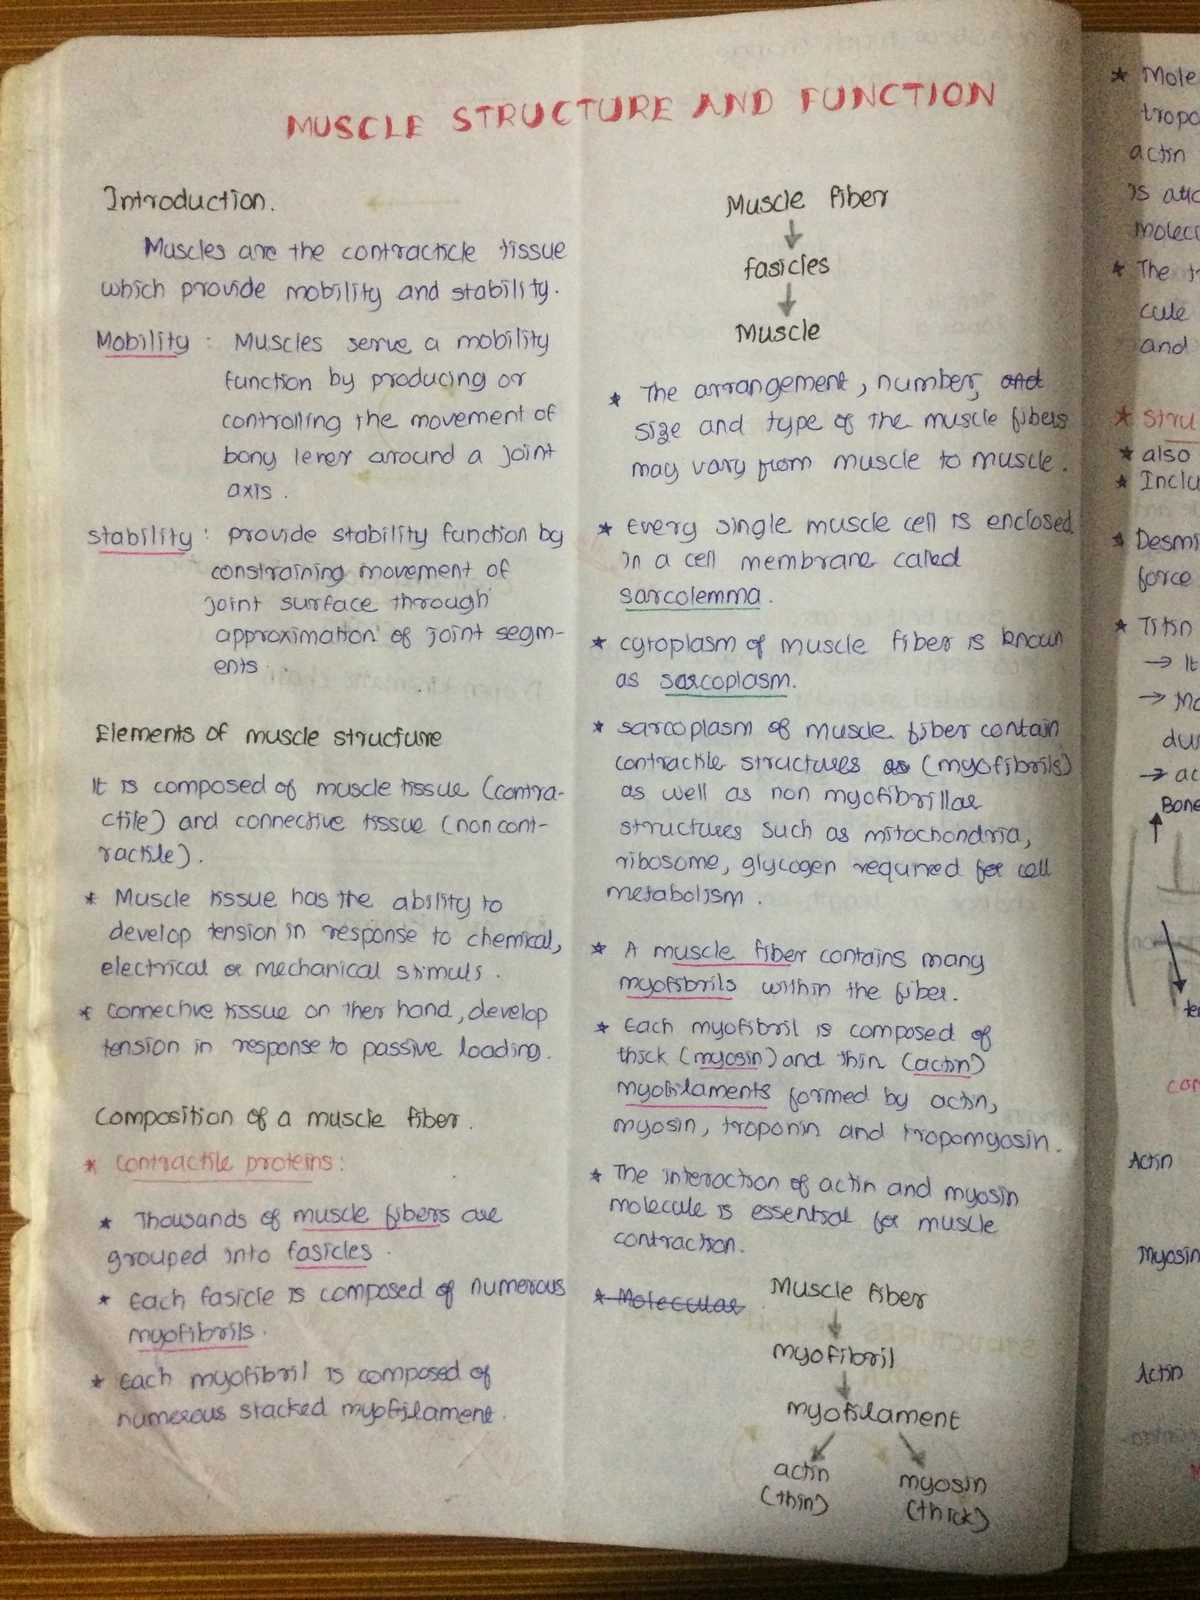 MUSCLE STRUCTURE AND FUNCTION
Introduction.
Muscles are the contracticle tissue
which provide mobility and stability.
Mobility : Muscles serve a mobility
function by producing or
controlling the movement of
bony lever around a joint
axis.
stability : provide stability function by
constraining movement of
joint surface through
approximation of joint segm-
ents.
Elements of muscle structure
It is composed of muscle tissue (contra-
ctile) and connective tissue (non cont-
ractile).
* Muscle tissue has the ability to
develop tension in response to chemical,
electrical or mechanical stimuls.
* connective tissue on ther hand, develop
tension in response to passive loading.
Composition of a muscle fiber.
* contractile proteins:
* Thousands of muscle fibers are
grouped into fasicles.
* Each fasicle is composed of numerous
myofibrils.
* Each myofibril is composed of
numerous stacked myofilament.
Muscle fiber
↓
fasicles
↓
Muscle
* The arrangement, number, and
size and type of the muscle fibers
may vary from muscle to muscle.
* Every single muscle cell is enclosed
in a cell membrane called
sarcolemma.
* cytoplasm of muscle fiber is known
as sarcoplasm.
* sarcoplasm of muscle fiber contain
contractile structures as (myofibrils)
as well as non myofibrillar
structures such as mitochondria,
ribosome, glycogen required for cell
metabolism.
* A muscle fiber contains many
myofibrils within the fiber.
* Each myofibril is composed of
thick (myosin) and thin (actin)
myofilaments formed by actin,
myosin, troponin and tropomyosin.
* The interaction of actin and myosin
molecule is essential for muscle
contraction.
* Molecular
Muscle fiber
↓
myofibril
↓
myofilament
↙ ↘
actin myosin
(thin) (thick)
* Mole
tropo
actin
is
molec
* The
cule
and
* Stru
* also
* Inclu
* Desmi
force
* Titin
→ It
→ Mo
dur
→ ac
Bone
↑
con
Actin
Myosin
Actin